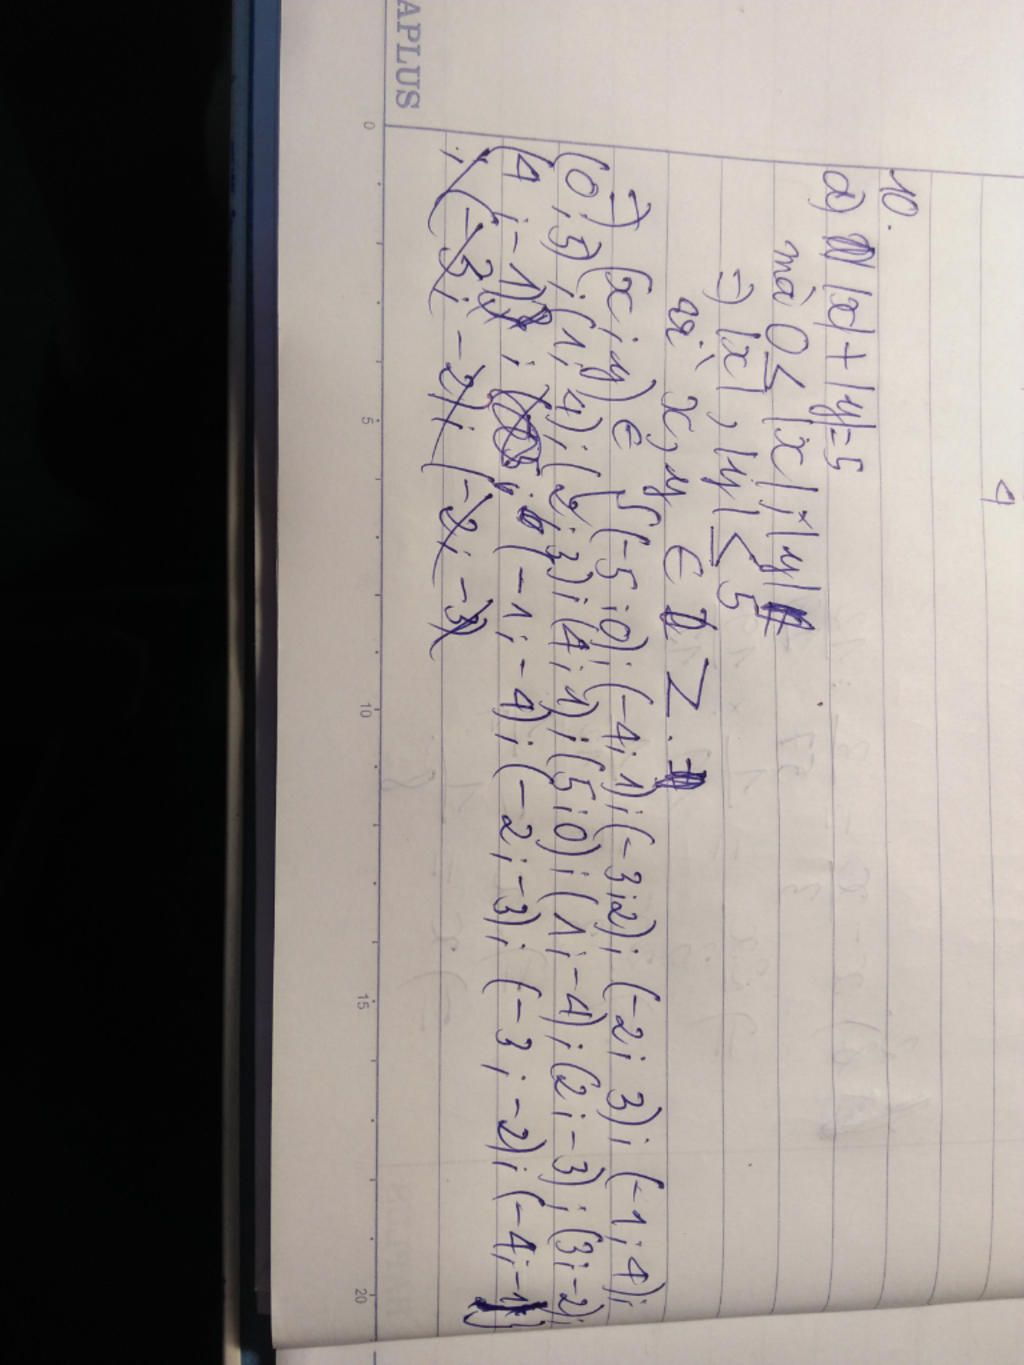 APLUS
4
10.
a) |x| + |y| = 5
mà 0 ≤ |x|, |y|
=) |x|, |y| ≤ 5
vì x, y ∈ Z.
=) (x; y) ∈ {(-5; 0); (-4; 1); (-3; 2); (-2; 3); (-1; 4);
(0; 5); (1; 4); (2; 3); (4; 1); (5; 0); (1; -4); (2; -3); (3; -2);
(4; -1); (-1; -4); (-2; -3); (-3; -2); (-4; -1)}
; (-3; -2); (-2; -3)
0 5 10 15 20